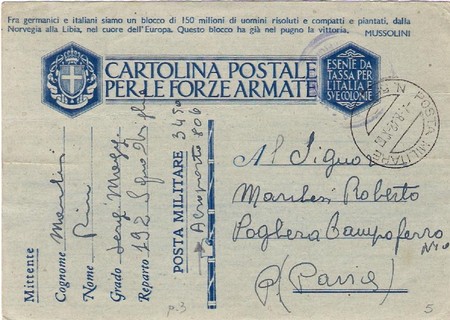 Fra germanici e italiani siamo un blocco di 150 milioni di uomini risoluti e compatti e piantati, dalla
Norvegia alla Libia, nel cuore dell'Europa. Questo blocco ha già nel pugno la vittoria. MUSSOLINI
CARTOLINA POSTALE
PER LE FORZE ARMATE
ESENTE DA
TASSA PER
L'ITALIA E
SVE COLONIE
POSTA MILITARE N.
Mittente
Cognome
Nome
Grado Serg. Magg.
Reparto 192
POSTA MILITARE 3450
Aeroporto 806
Al Signor
Marchesi Roberto
(Pavia)
p.3
5